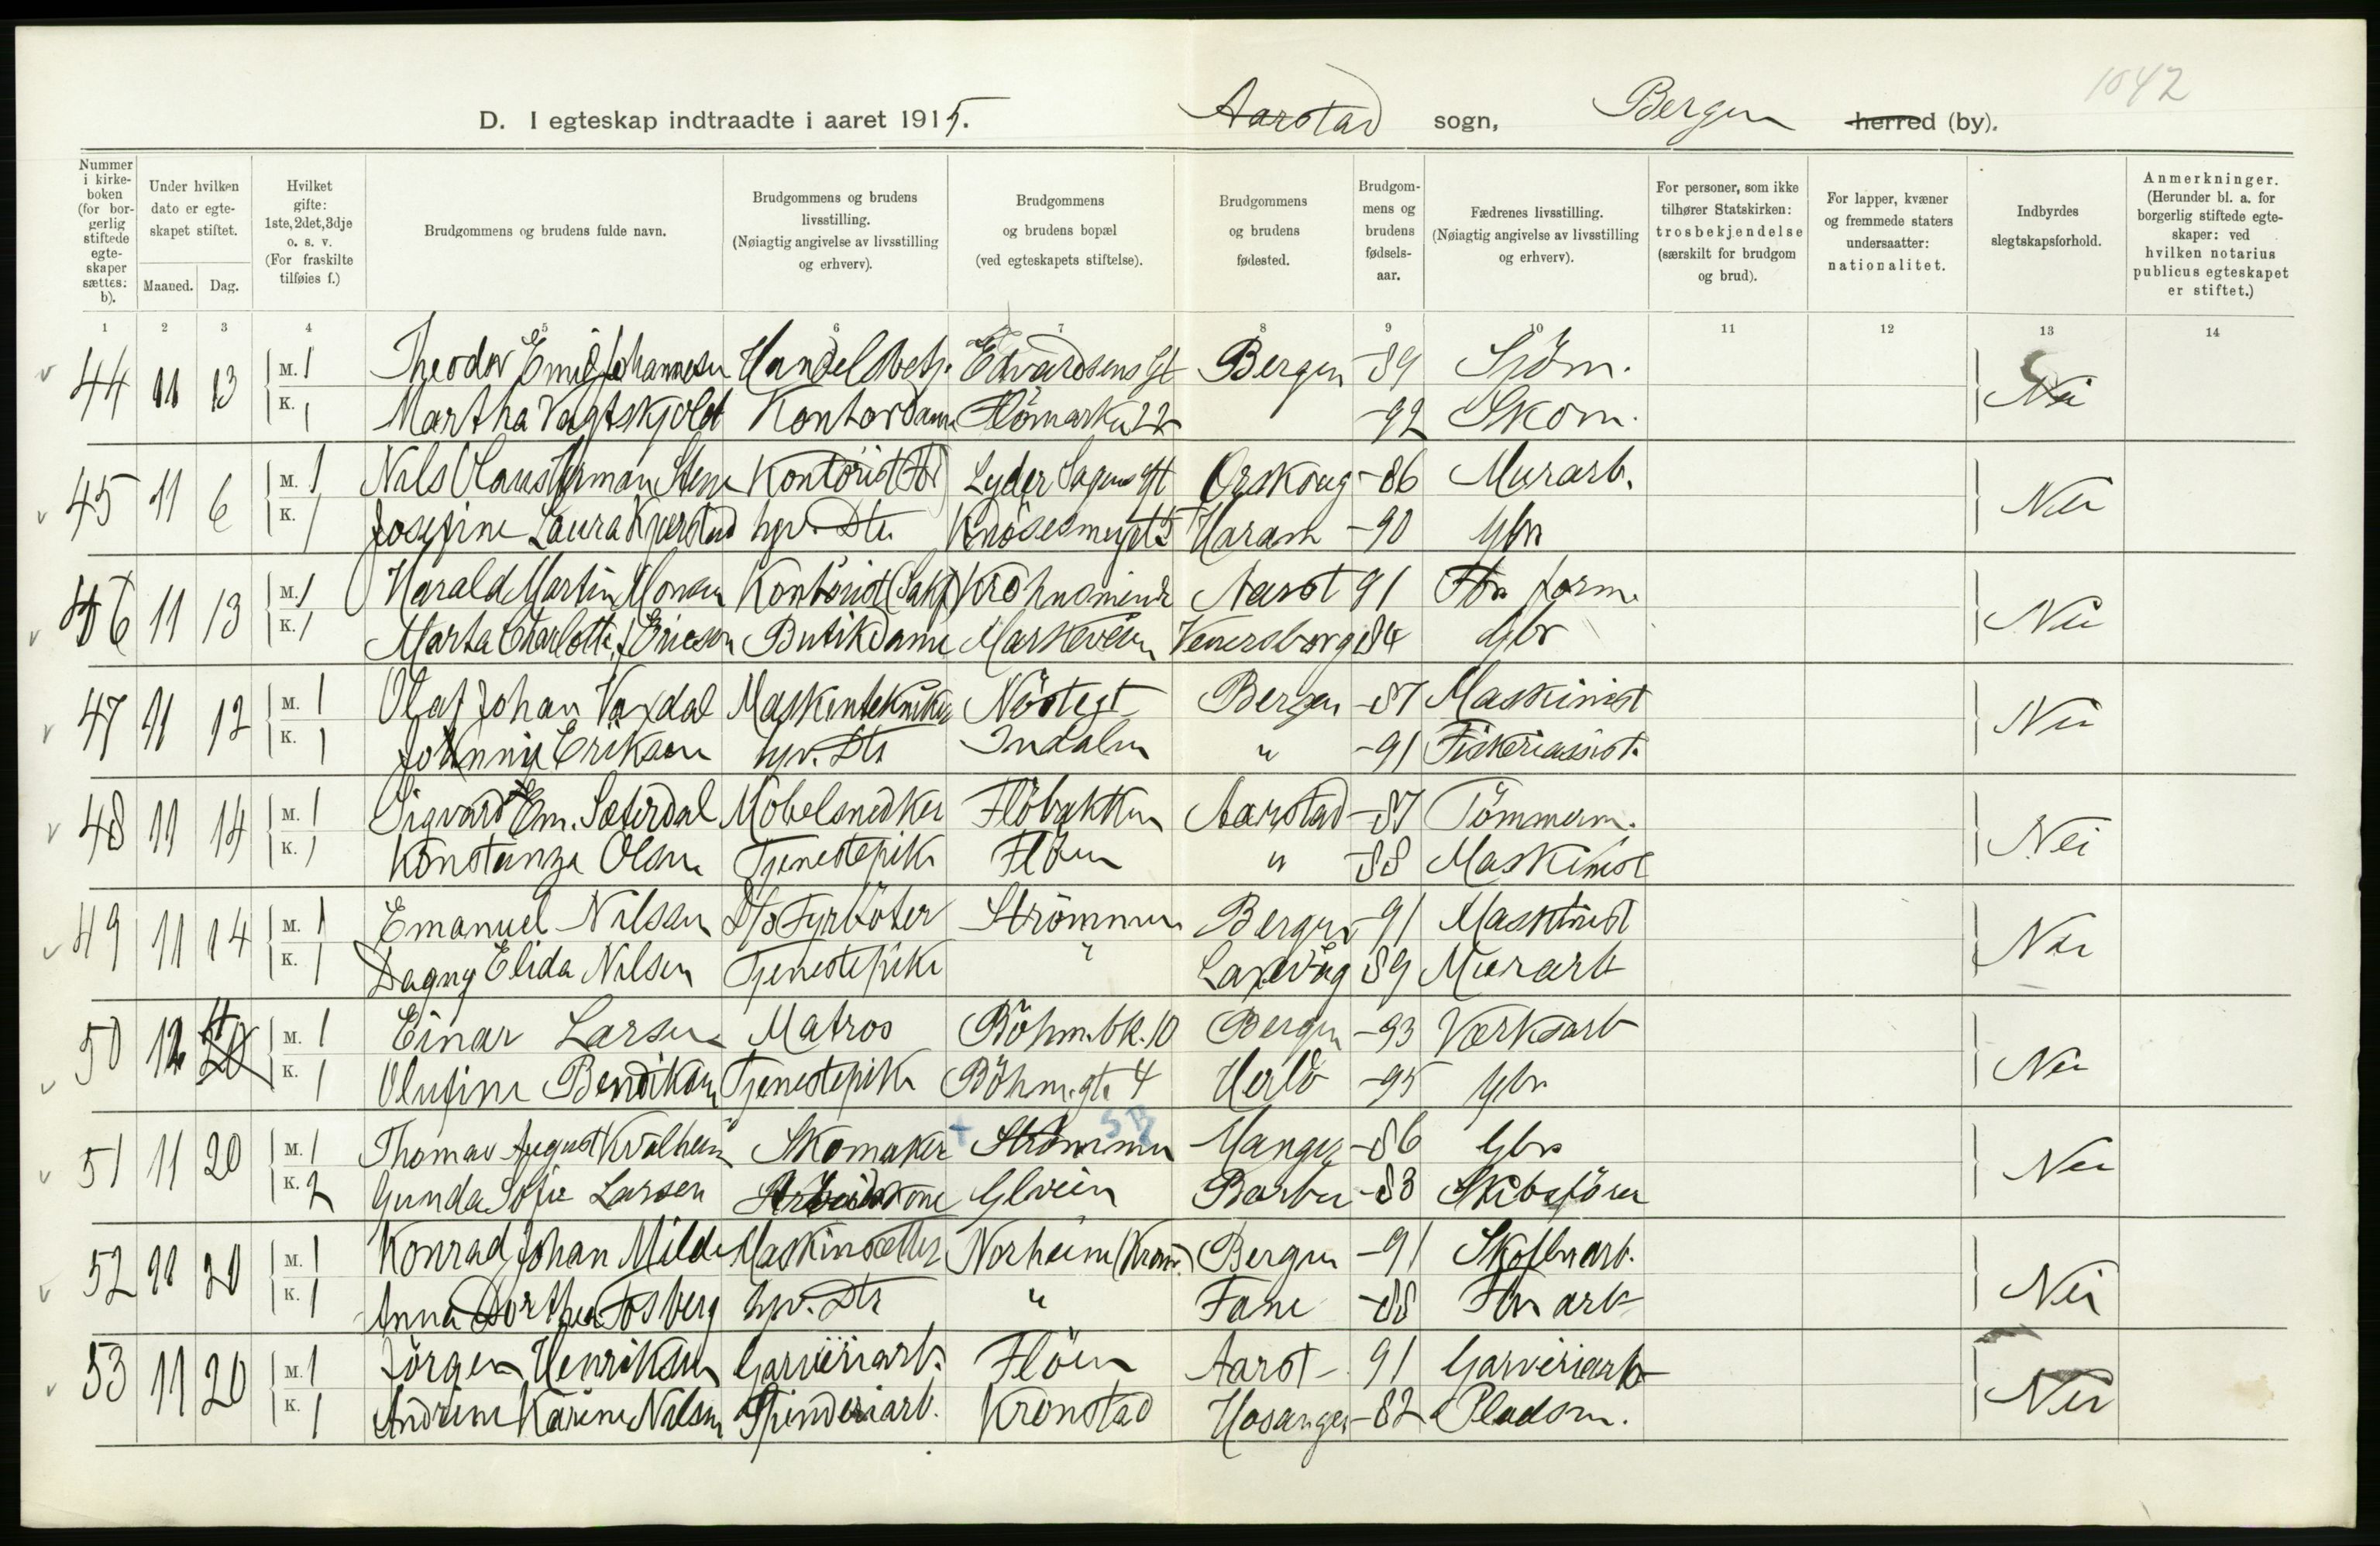 1042
D. I egteskap indtraadte i aaret 1915. Aarstad sogn, Bergen herred (by).
Nummer i kirkeboken (for borgerlig stiftede egteskaper sættes: b).
Under hvilken dato er egteskapet stiftet.
Maaned. Dag.
Hvilket gifte: 1ste, 2det, 3dje o. s. v. (For fraskilte tilføies f.)
Brudgommens og brudens fulde navn.
Brudgommens og brudens livsstilling. (Nøiagtig angivelse av livsstilling og erhverv).
Brudgommens og brudens bopæl (ved egteskapets stiftelse).
Brudgommens og brudens fødested.
Brudgommens og brudens fødselsaar.
Fædrenes livsstilling. (Nøiagtig angivelse av livsstilling og erhverv).
For personer, som ikke tilhører Statskirken: trosbekjendelse (særskilt for brudgom og brud).
For lapper, kvæner og fremmede staters undersaatter: nationalitet.
Indbyrdes slegtskapsforhold.
Anmerkninger. (Herunder bl. a. for borgerlig stiftede egteskaper: ved hvilken notarius publicus egteskapet er stiftet.)
1 2 3 4 5 6 7 8 9 10 11 12 13 14
44 11 13 M. 1 Theodor Emil Johannesen Handelsbetj. Edvardsens Gt Bergen -89 Sjöm. Nei
K. 1 Martha Vagtskjold Kontordame Flömarken 22 -92 Skom.
45 11 6 M. 1 Nils Olaus Herman Stene Kontorist Lyder Sagens Gt Örskoug -86 Murarb. Nei
K. 1 Josefine Laura Kjerstad hpv. Dtr Knösesmuget 5 Haram -90 Gbr
46 11 13 M. 1 Harald Martin Monsen Kontorist Krohnsminde Aarst 91 Fbr form. Nei
K. 1 Marta Charlotte Ericson Butikdame Markeveien Venersborg 84 Gbr
47 11 12 M. 1 Olaf Johan Vaxdal Maskintekniker Nöstegt Bergen -87 Maskinist Nei
K. 1 Johnny Erikson hpv. Dtr Indalen " -91 Fiskeriassist.
48 11 14 M. 1 Sigvard Em. Sæterdal Möbelsnedker Flöbakken Aarstad -87 Tömmerm. Nei
K. 1 Konstanze Olsen Tjenestepike Flöen " -88 Maskinist
49 11 14 M. 1 Emanuel Nilsen D/s Fyrböter Strömmen Bergen -91 Maskinist Nei
K. 1 Dagny Elida Nilsen Tjenestepike " Laxevaag 89 Murarb
50 12 M. 1 Einar Larsen Matros Böhm.bk. 10 Bergen -93 Værksarb Nei
K. 1 Olufine Bendiksen Tjenestepike Böhm.gt. 4 Herlö -95 Gbr
51 11 20 M. 1 Thomas August Kvalheim Skomaker Strömmen Manger -86 Gbr Nei
K. 2 Gunda Sofie Larsen Arbeidskone Glvein Barbu -83 Skibsförer
52 11 20 M. 1 Konrad Johan Milde Maskinsetter Norheim (Kron.) Bergen -91 Skofbrarb. Nei
K. 1 Anna Dorthea Fosberg hpv. Dtr " Fane -88 Fbr arb
53 11 20 M. 1 Jörgen Henriksen Garveriarb. Flöen Aarst- 91 Garveriarb Nei
K. 1 Andrine Karine Nilsen Spinderiarb. Kronstad Hosanger -82 Pladsm.